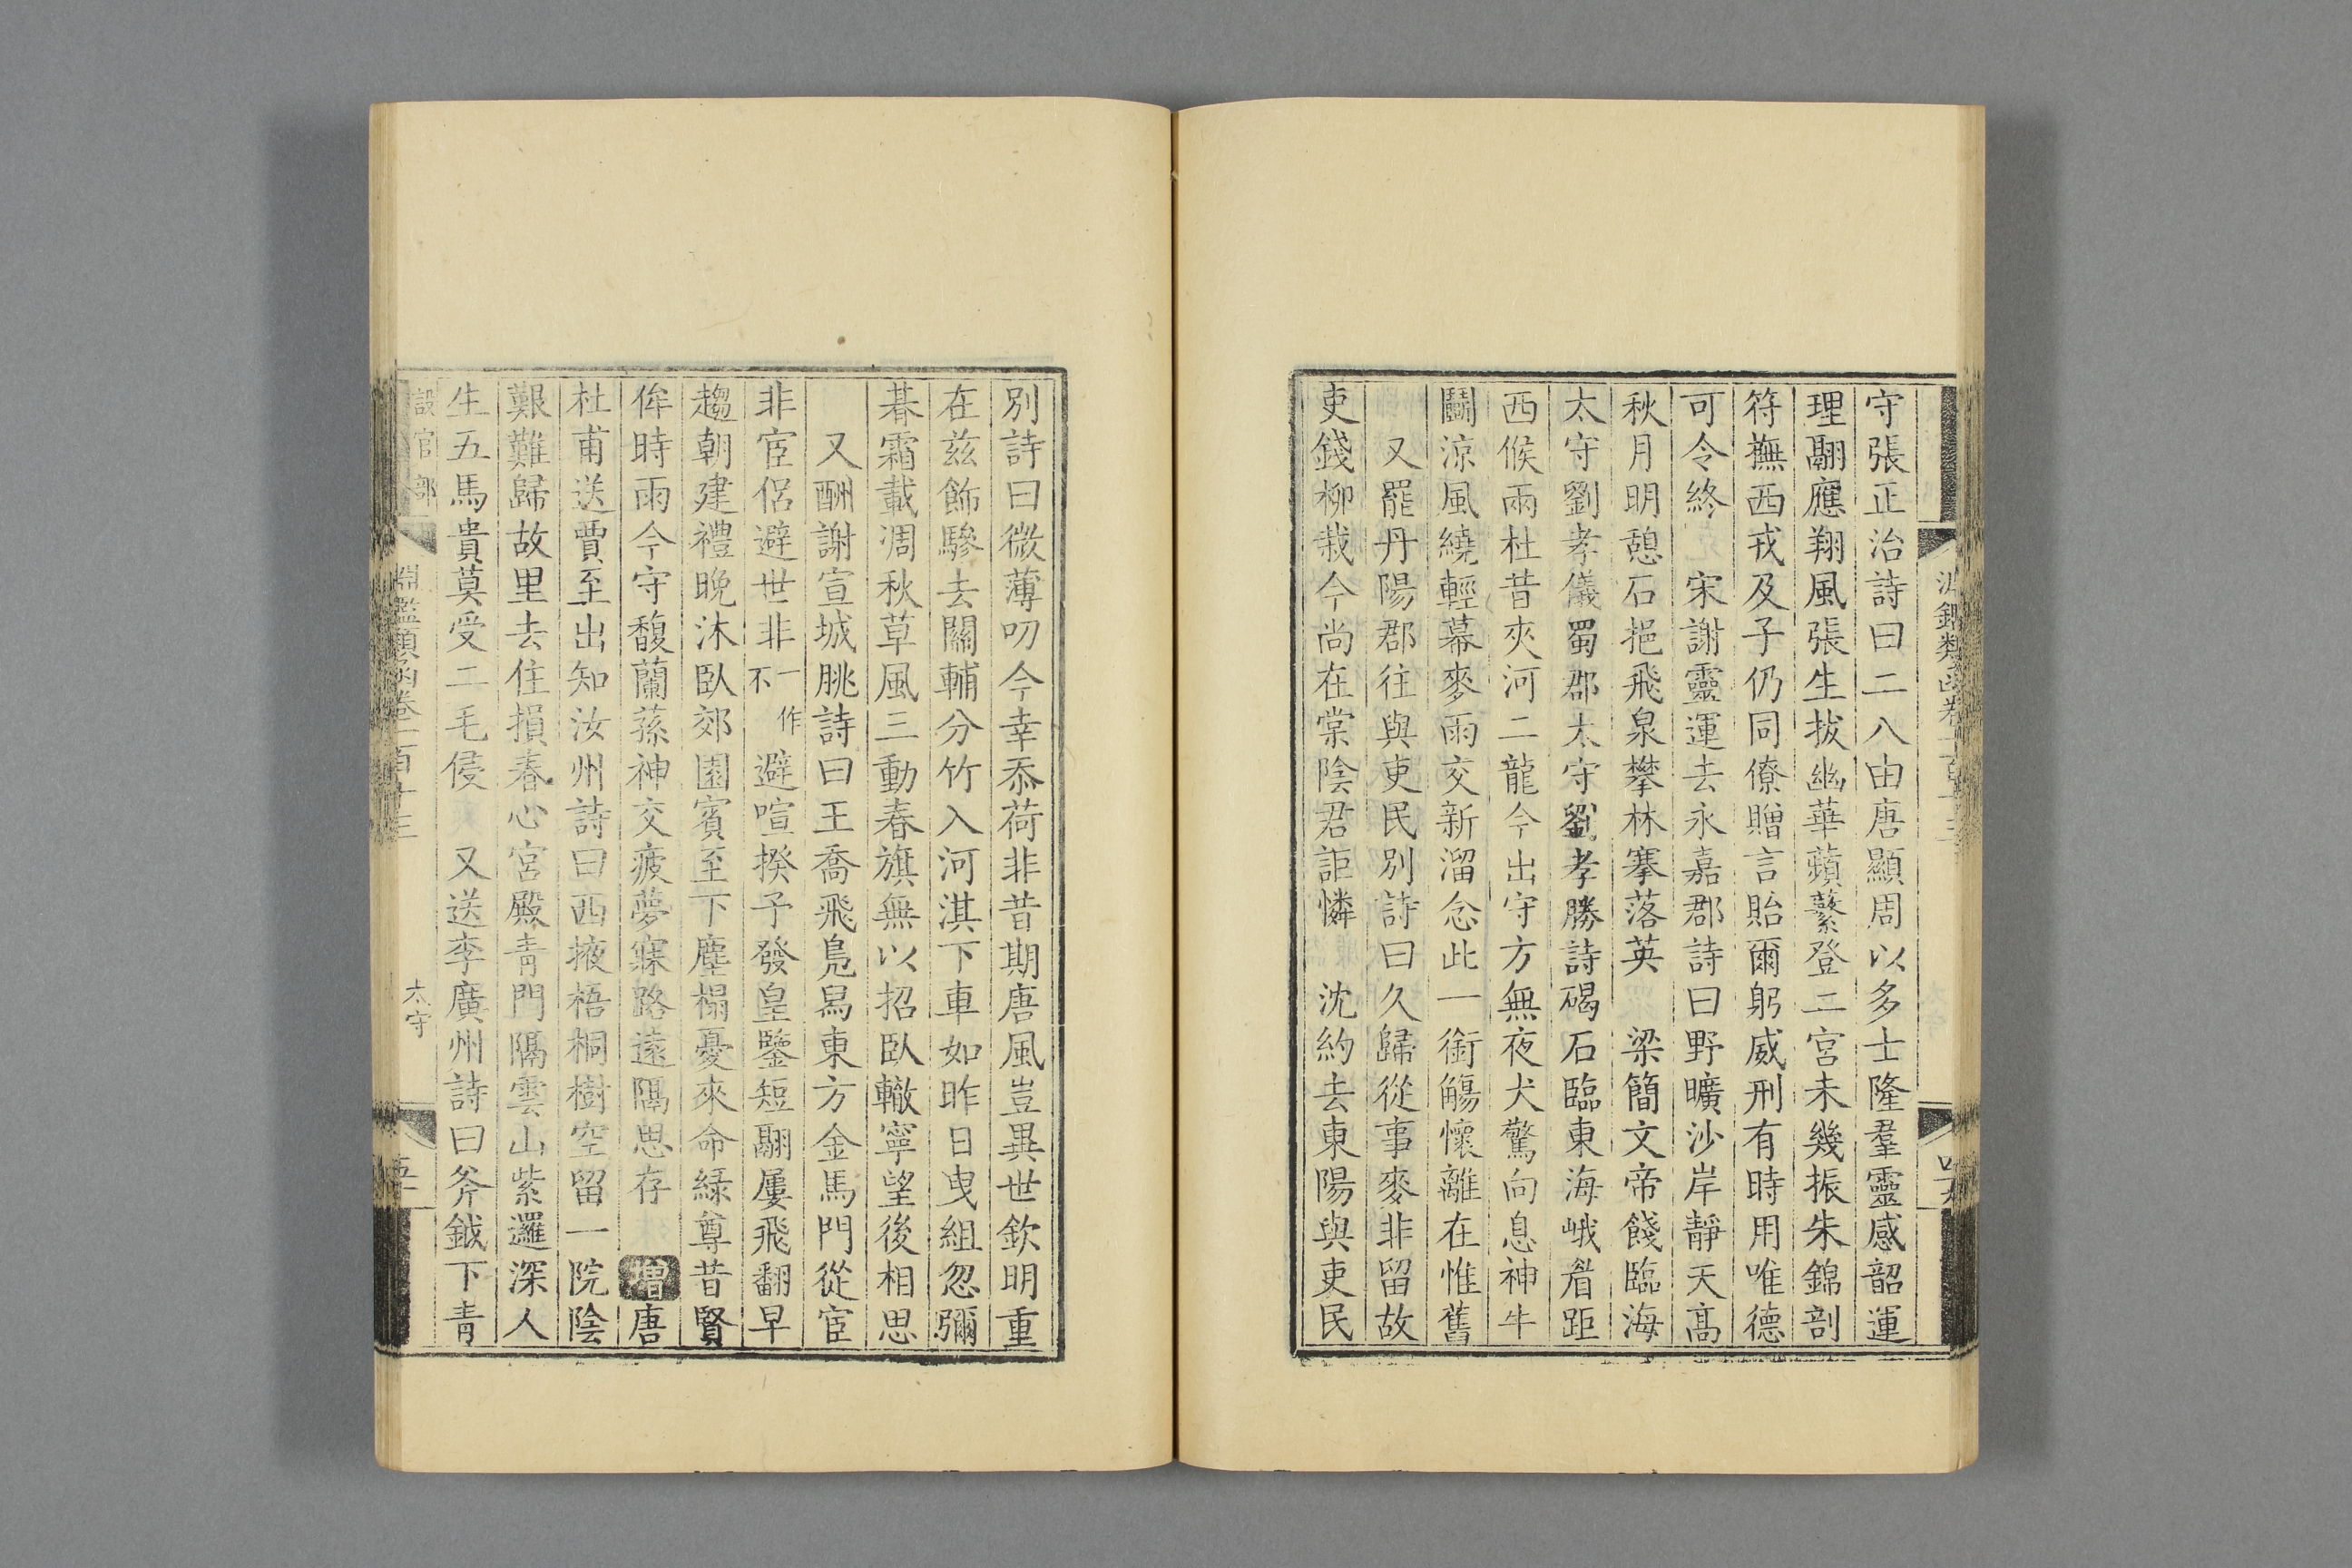 守張正治詩曰二八由唐顯周以多士隆羣靈感韶運
理翮應翔風張生拔幽華蘋蘩登二宮未幾振朱錦剖
符撫西戎及子仍同僚贈言貽爾躬威刑有時用唯德
可令終　宋謝靈運去永嘉郡詩曰野曠沙岸靜天高
秋月明憩石挹飛泉攀林搴落英　梁簡文帝餞臨海
太守劉孝儀蜀郡太守劉孝勝詩碣石臨東海峨眉距
西候雨杜昔夾河二龍今出守方無夜犬驚向息神牛
鬭涼風繞輕幕麥雨交新溜念此一銜觴懷離在惟舊
又罷丹陽郡往與吏民別詩曰久歸從事麥非留故
吏錢柳栽今尚在棠陰君詎憐　沈約去東陽與吏民
別詩曰微薄叨今幸忝荷非昔期唐風豈異世欽明重
在兹飾驂去關輔分竹入河淇下車如昨日曳組忽彌
朞霜載凋秋草風三動春旗無以招臥轍寧望後相思
又酬謝宣城朓詩曰王喬飛鳧舄東方金馬門從宦
非宦侶避世非一作不避喧揆予發皇鑒短翮屢飛翻早
趨朝建禮晚沐臥郊園賓至下塵榻憂來命緑尊昔賢
侔時雨今守馥蘭蓀神交疲夢寐路遠隔思存　增唐
杜甫送賈至出知汝州詩曰西掖梧桐樹空留一院陰
艱難歸故里去住損春心宮殿青門隔雲山紫邏深人
生五馬貴莫受二毛侵　又送李廣州詩曰斧鉞下青
設官部　淵鑑類函卷一百十三　太守